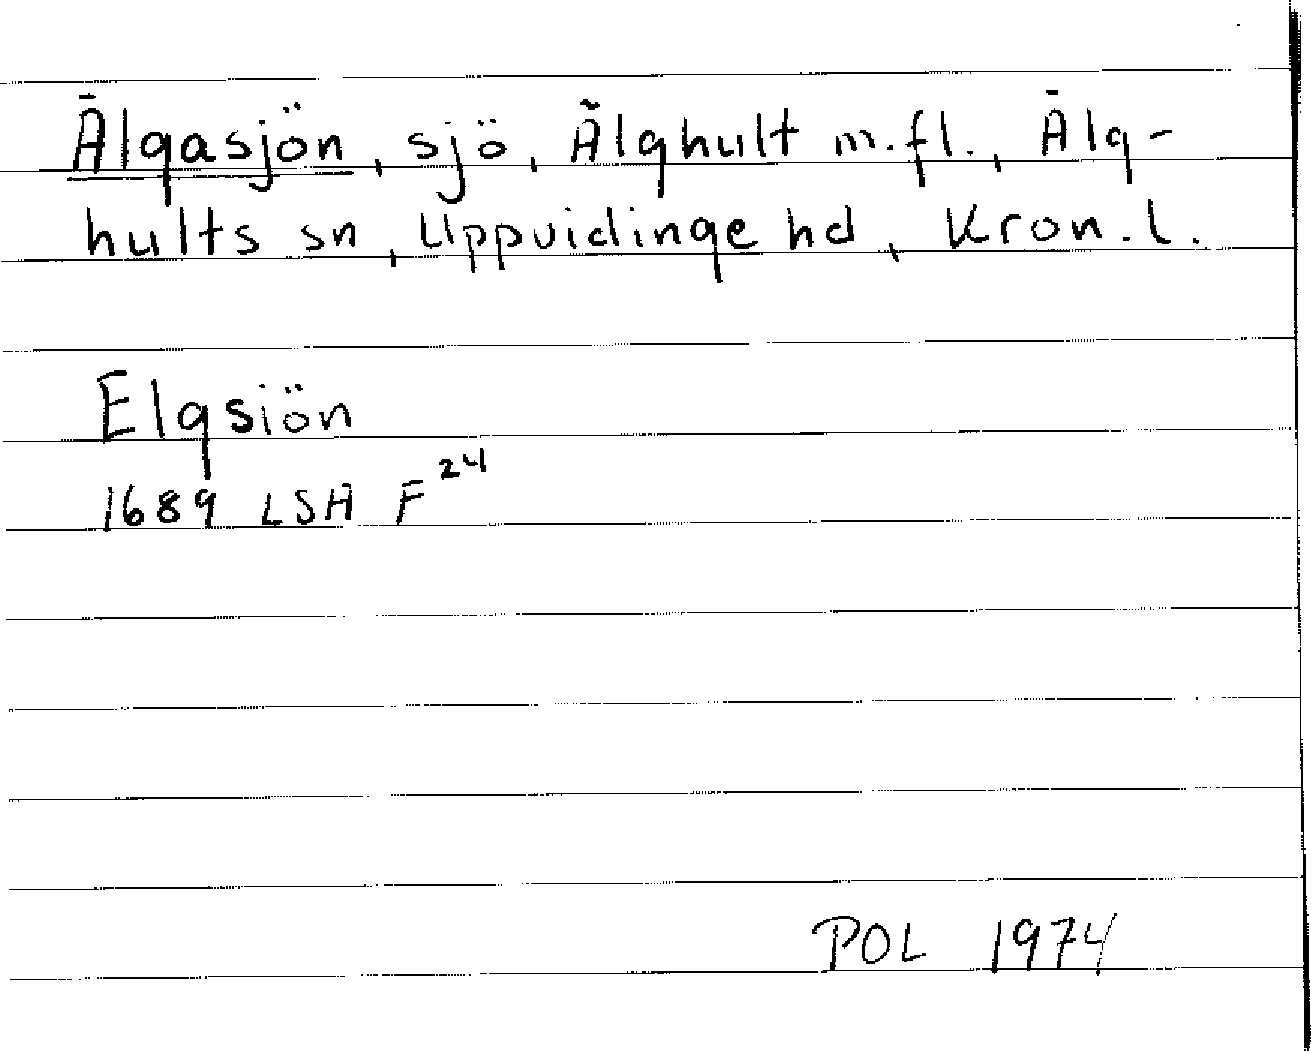 Älgasjön, sjö, Älghult m.fl., Älg-
hults sn, Uppvidinge hd, Kron. l.
Elgsiön
1689 LSA F24
POL 1974